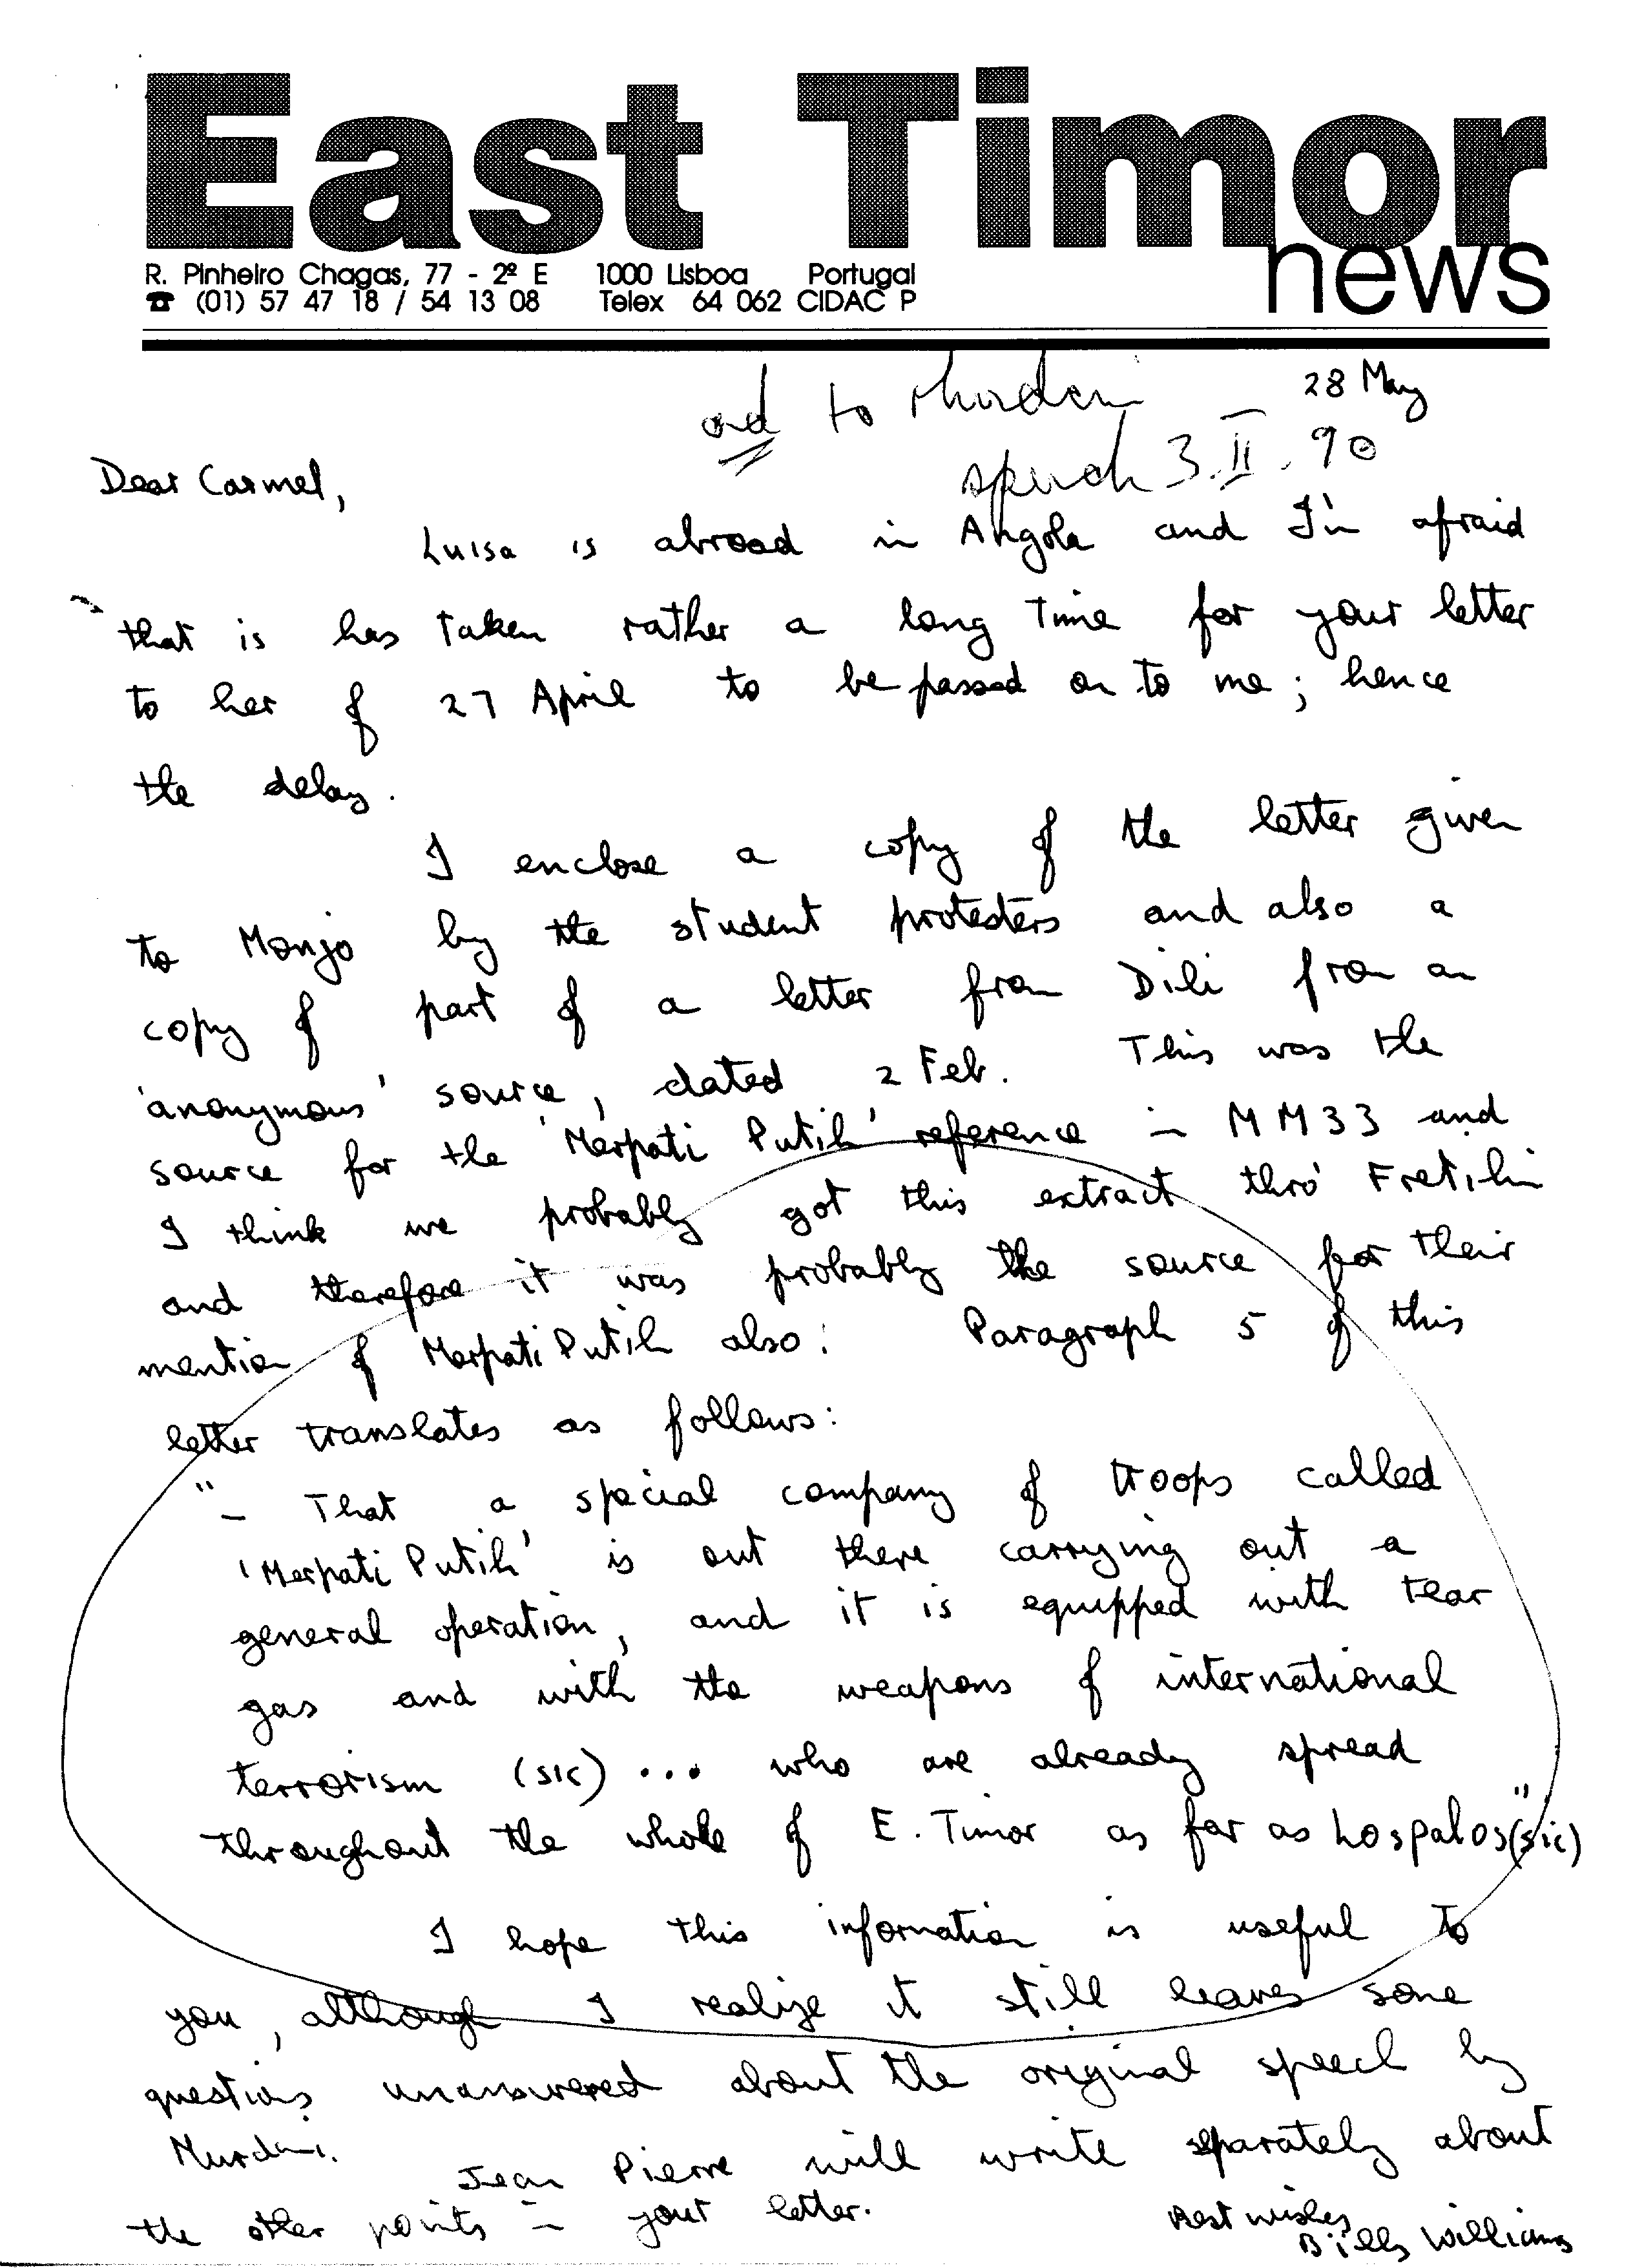 East Timor
news
R. Pinheiro Chagas, 77 - 2º E 1000 Lisboa Portugal
☎ (01) 57 47 18 / 54 13 08 Telex 64 062 CIDAC P
28 May
ad to Murdani
speech 3.II.90
Dear Carmel,
Luisa is abroad in Angola and I'm afraid
that is has taken rather a long time for your letter
to her of 27 April to be passed on to me; hence
the delay.
I enclose a copy of the letter given
to Monjo by the student protesters and also a
copy of part of a letter from Dili from an
'anonymous' source, dated 2 Feb. This was the
source for the 'Merpati Putih' reference in MM33 and
I think we probably got this extract thro' Fretilin
and therefore it was probably the source for their
mention of Merpati Putih also. Paragraph 5 of this
letter translates as follows:
"- That a special company of troops called
'Merpati Putih' is out there carrying out a
general operation, and it is equipped with tear
gas and with the weapons of international
terrorism (sic) ... who are already spread
throughout the whole of E. Timor as far as Lospalos" (sic)
I hope this information is useful to
you, although I realize it still leaves some
questions unanswered about the original speech by
Murdani.
Jean Pierre will write separately about
the other points in your letter.
Best wishes,
Billy Williams